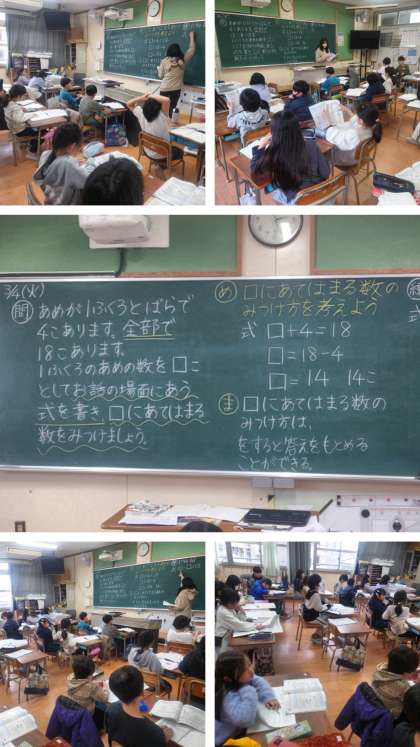 3/4(火)
問 あめが1ふくろとばらで
4こあります。全部で
18こあります。
1ふくろのあめの数を□こ
としてお話の場面にあう
式を書き、□にあてはまる
数をみつけましょう。
め □にあてはまる数の
みつけ方を考えよう
式 □+4=18
□=18-4
□=14 14こ
ま □にあてはまる数の
みつけ方は、
をすると答えをもとめる
ことができる。